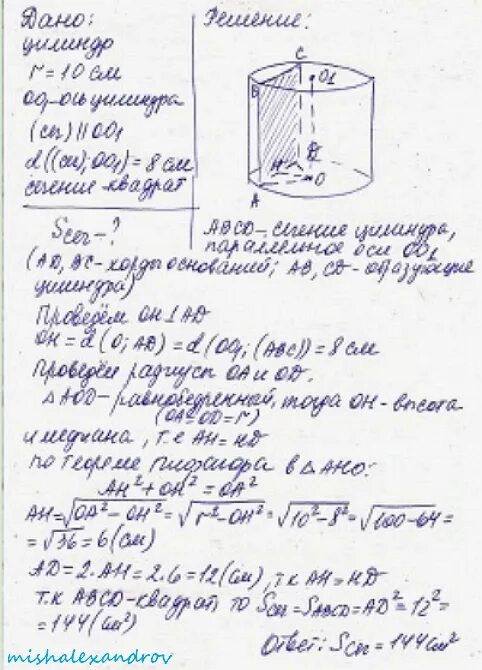 Дано:
цилиндр
r = 10 см
OO₁-ось цилиндра
(сег) || OO₁
d((сег); OO₁) = 8 см
сечение-квадрат
Sсег - ?
Решение:
C
O₁
B
H
D
O
A
ABCD - сечение цилиндра,
параллельное оси OO₁
(AD, BC - хорды оснований; AB, CD - образующие
цилиндра)
Проведём OH ⊥ AD
OH = d(O; AD) = d(OO₁; (ABC)) = 8 см
Проведём радиусы OA и OD.
△AOD - равнобедренный, тогда OH - высота
(OA = OD = r)
и медиана, т.е AH = HD
по теореме Пифагора в △AHO:
AH² + OH² = OA²
AH = √OA² - OH² = √r² - OH² = √10² - 8² = √100 - 64 =
= √36 = 6 (см)
AD = 2·AH = 2·6 = 12 (см), т.к AH = HD
т.к ABCD - квадрат, то Sсег = SABCD = AD² = 12² =
= 144 (см²)
Ответ: Sсег = 144 см²
mishalexandrov